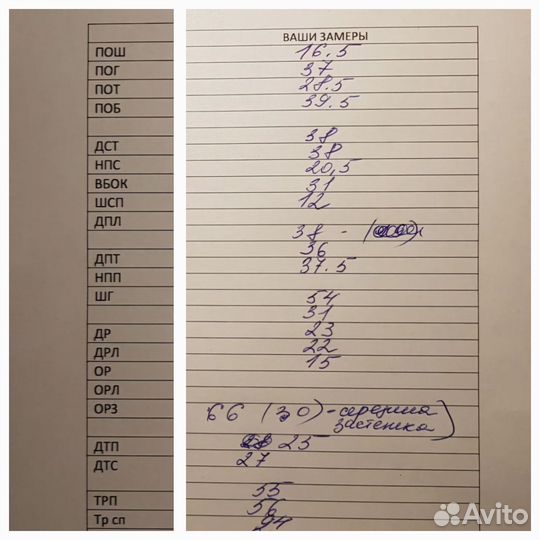 ВАШИ ЗАМЕРЫ
ПОШ 16.5
ПОГ 37
ПОТ 28.5
ПОБ 39.5
38
ДСТ 38
НПС 20,5
ВБОК 31
ШСП 12
ДПЛ
38 -
36
ДПТ 37.5
НПП
ШГ 54
31
ДР 23
ДРЛ 22
ОР 15
ОРЛ
ОРЗ 66 (30) - середина
застежка)
ДТП 25
ДТС 27
55
ТРП 56
Тр сп 94
Avito